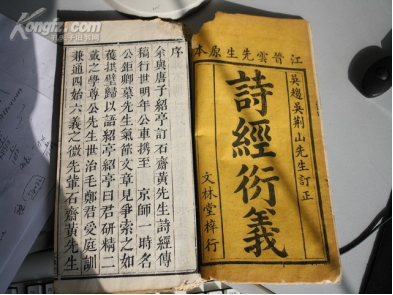 Kongfz.com
孔夫子旧书网
江晉雲先生原本
吳趨吳荊山先生訂正
詩經衍義
文林堂梓行
序
余與唐子紹亭訂石齋黃先生詩經傳
稿行世明年公車携至 京師一時名
公鉅卿慕先生氣節文章見爭索之如
獲拱璧歸以語紹亭紹亭曰君研精二
戴之學尊公先生世治毛鄭君受庭訓
兼通四始六義之微先輩石齋黃先生